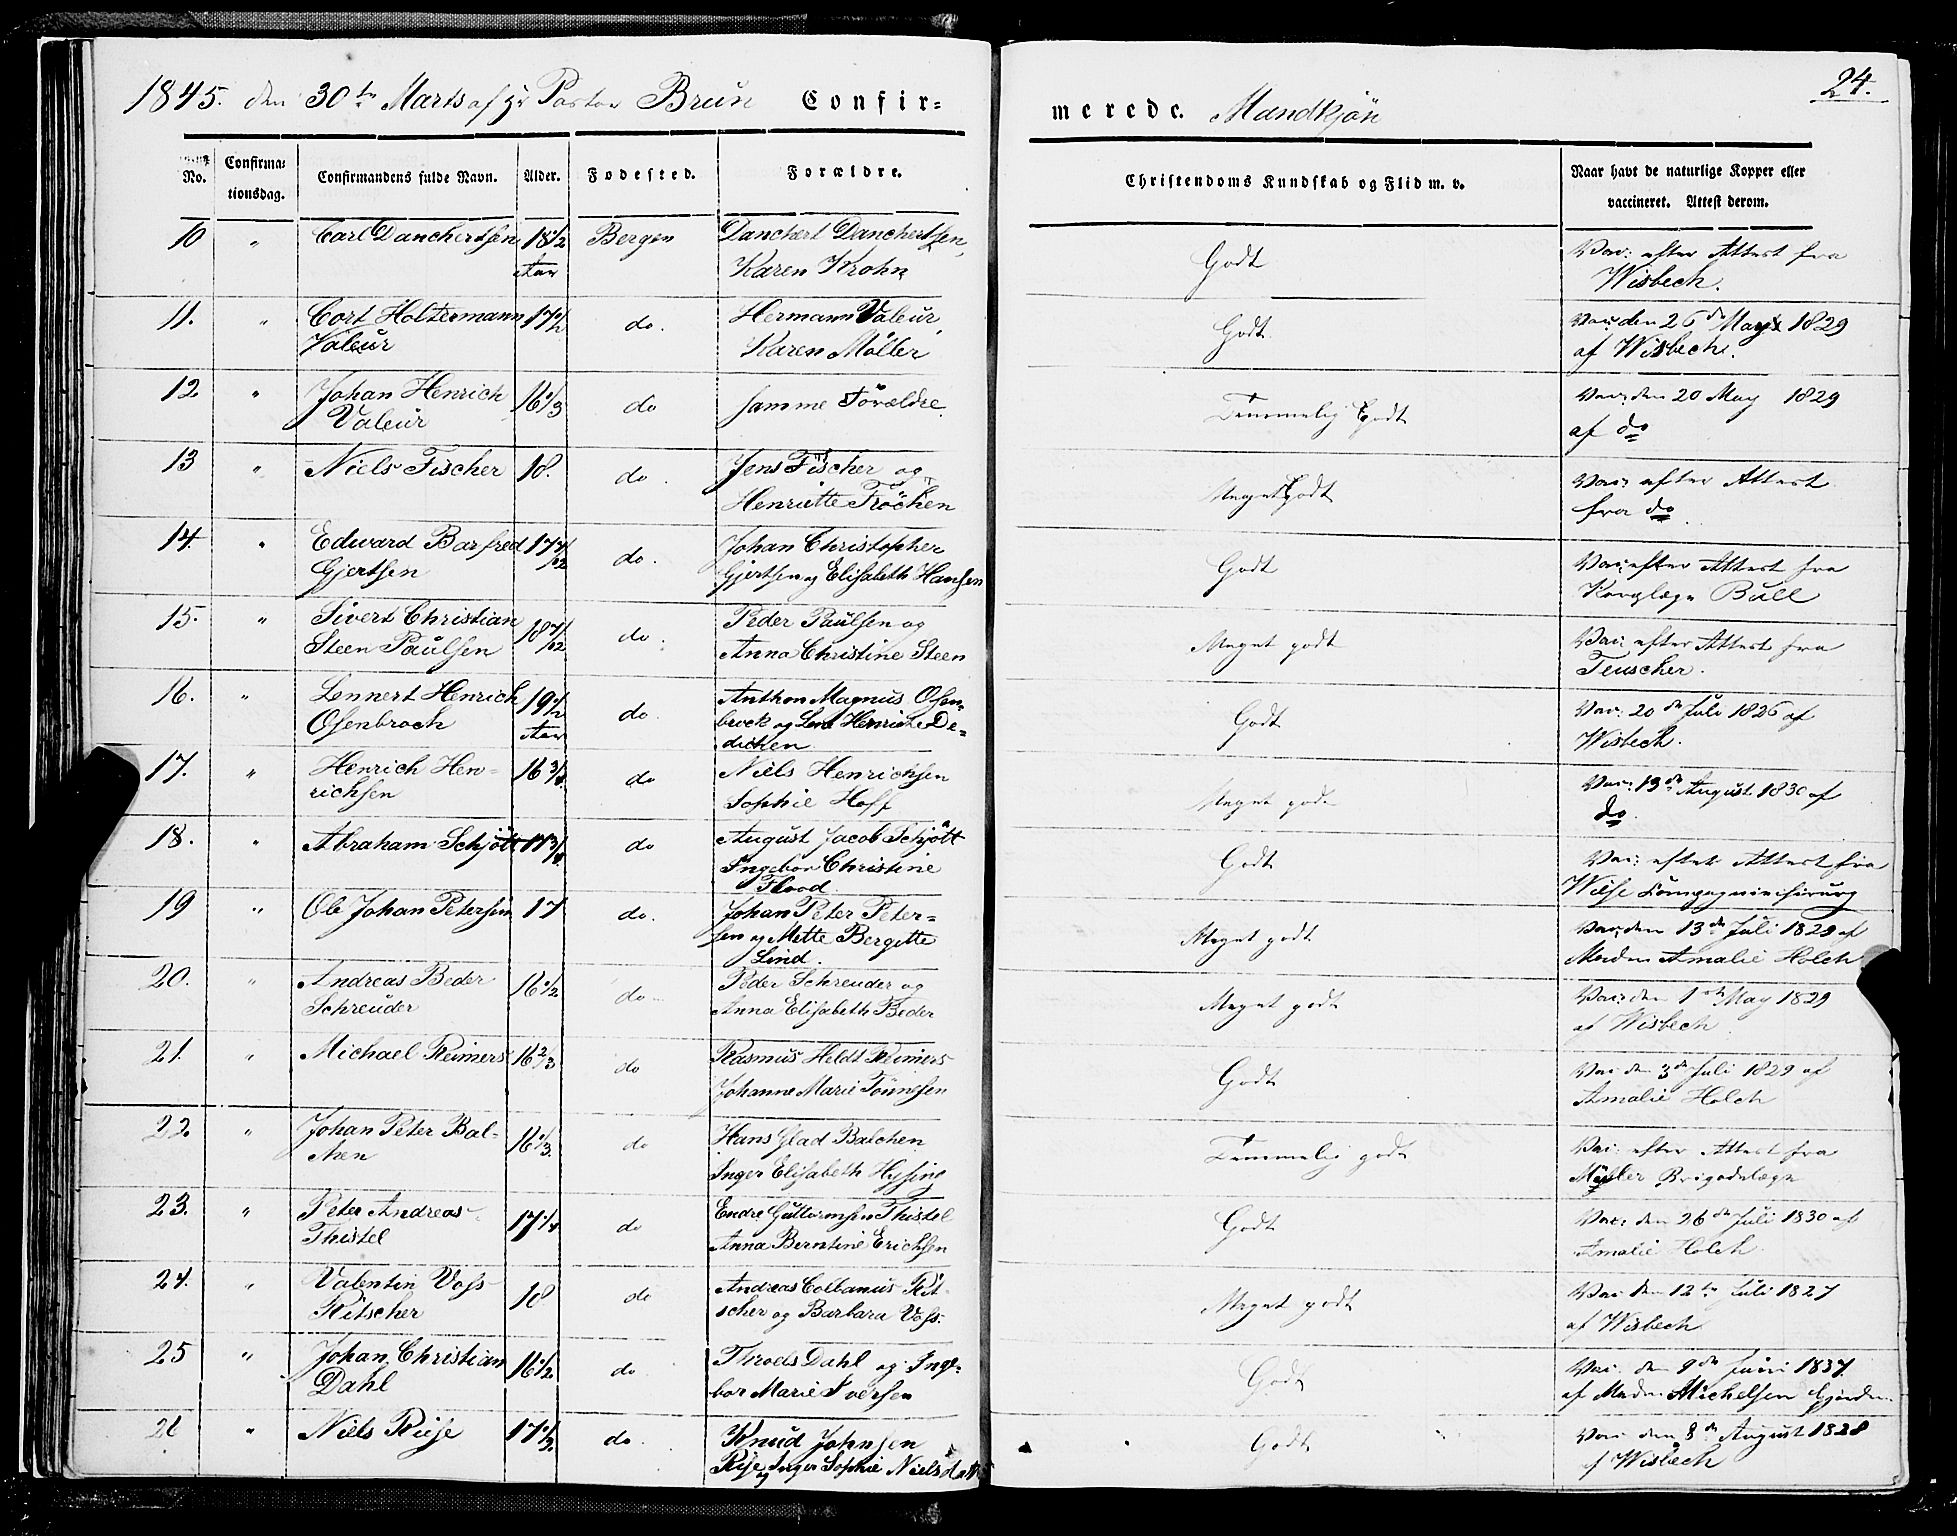 1845. den 30te Marts af Hr Pastor Brun Confir-
merede. Mandkjön
24.
No.
Confirma-
tionsdag.
Confirmandens fulde Navn.
Alder.
Fodested.
Forældre.
Christendoms Kundskab og Flid m. v.
Naar havt de naturlige Kopper eller
vaccineret. Attest derom.
10 " Carl Danchertsen 18 1/2 Bergen Danchert Danchertsen,
Aar Karen Krohn
Godt
Vac: efter Attest fra
Wisbech.
11. " Cort Holtermann 17 1/2 do. Hermann Valeur,
Valeur Karen Möller
Godt
Vac: den 26de May 1829
af Wisbech.
12. " Johan Henrich 16 1/3 do samme Forældre.
Valeur
Temmelig Godt
Vac: den 20 May 1829
af do
13 " Niels Fischer 18. do. Jens Fischer og
Henriette Fröchen
Meget Godt
Vac: efter Attest
fra do
14. " Edvard Barfred 17 7/12 do. Johan Christopher
Gjertsen Gjertsen og Elisabeth Hansen
Godt
Vac: efter Attest fra
Bull
15. " Sivert Christian 18 7/12 do. Peder Paulsen og
Steen Paulsen Anna Christine Steen
Meget godt
Vac: efter Attest fra
Teuscher.
16. " Lennert Henrich 19 1/2 do. Anthon Magnus Osen-
Osenbroch Aar brock og Henriche De-
dichen
Godt
Vac: 20de Juli 1826 af
Wisbech.
17. " Henrich Hen- 16 3/4 do Niels Henrichsen
richsen Sophie Hoff
Meget godt
Vac: 13de August 1830 af
do.
18. " Abraham Schjött 17 3/4 do August Jacob Schjött
Ingebor Christine
Flood
Godt
Vac: efter Attest fra
Wiese Compagniechirurg
19 " Ole Johan Petersen 17 do. Johan Peter Peter-
sen og Mette Bergitte
Lind.
Meget godt
Vac: den 13de Juli 1829 af
Madm Amalie Holch
20. " Andreas Beder 16 1/2 do Peder Schreuder og
Schreuder Anna Elisabeth Beder
Meget godt
Vac: den 1ste May 1829
af Wisbech
21. " Michael Reimers 16 2/3 do Rasmus Heldt Reimers
Johanne Marie Tönnesen
Godt
Vac den 3de Juli 1829 af
Amalie Holch
22. " Johan Peter Bal- 16 1/3. do Hans Glad Balchen
chen Inger Elisabeth Hysing
Temmelig godt
Vac: efter Attest fra
Müller Brigadelæge
23. " Peter Andreas 17 1/4 do Endre Guttormsen Thistel
Thistel Anna Berntine Erichsen
Godt
Vac: den 26de Juli 1830 af
Amalie Holch
24. " Valentin Voss 18 do Andreas Colbanus Rit-
Ritscher scher og Barbara Voss.
Meget godt
Vac den 12te Juli 1827
af Wisbech
25 " Johan Christian 16 1/2 do. Throels Dahl og Inge-
Dahl bor Marie Iversen
Godt
Vac: den 9de Juni 1837.
af Madm Michelsen
26 " Niels Riise 17 1/2 do. Knud Johnsen
Riise og Inger Sophie Nielsdatter
Godt
Vac den 8de August 1828
af Wisbech